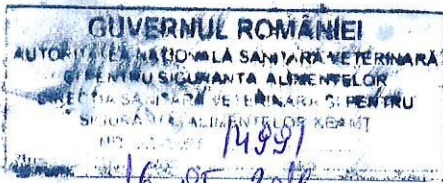 GUVERNUL ROMÂNIEI
AUTORITATEA NAŢIONALĂ SANITARĂ VETERINARĂ
ŞI PENTRU SIGURANŢA ALIMENTELOR
DIRECŢIA SANITARĂ VETERINARĂ ŞI PENTRU
SIGURANŢA ALIMENTELOR NEAMŢ
14991
16 05